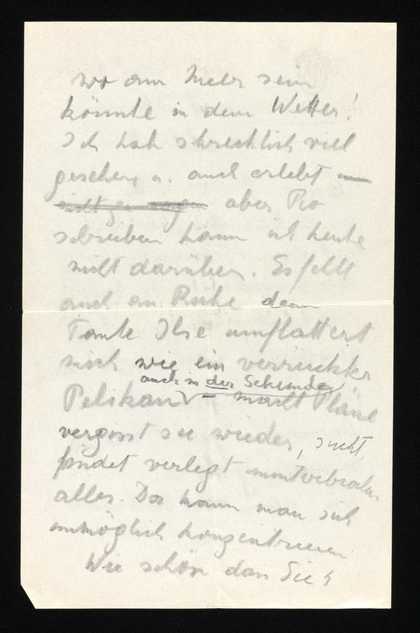 wo am Meer sein
könnte in dem Wetter!
Ich hab schrecklich viel
gesehen u. auch erlebt
aber
schreiben kann ich heute
nicht darüber. Es fehlt
auch an Ruhe denn
Tante Ilse umflattert
mich wie ein verrückter
auch in der Sekunde
Pelikan – macht Pläne
vergisst sie wieder, sucht
findet verlegt
alles. Da kann man sich
unmöglich konzentrieren
Wie schön dass Sie